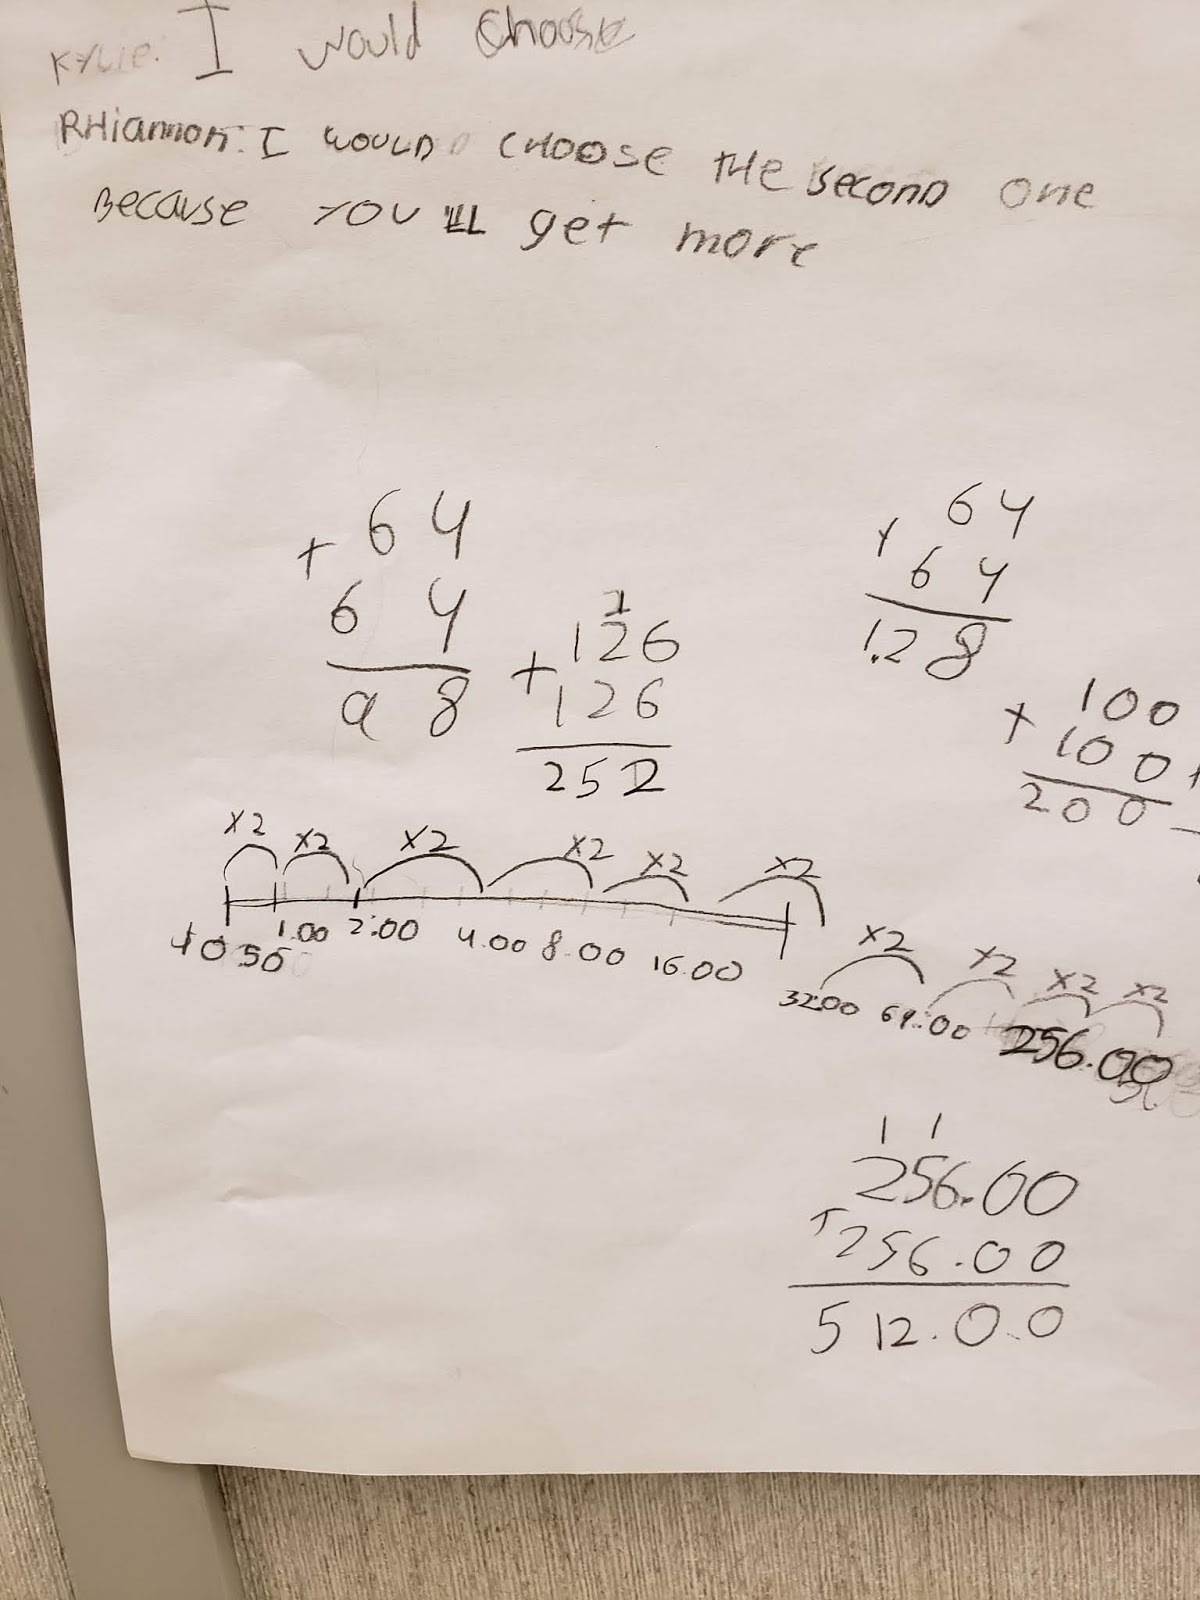 KYLIE: I would choose
RHiannon: I WOULD CHOOSE THE second one
Because YOU'LL get more
+ 64
64
98
1
+ 126
126
252
+ 64
64
1.28
+ 100
100
200
x2 x2 x2 x2 x2 x2
x2 x2 x2 x2
50 1.00 2.00 4.00 8.00 16.00
32.00 64.00 256.00
1 1
256.00
+ 256.00
512.00